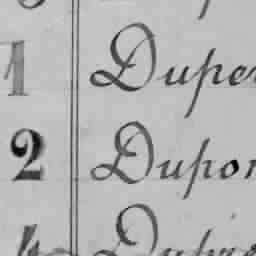 1 Duper
2 Dupon
4 Dupre